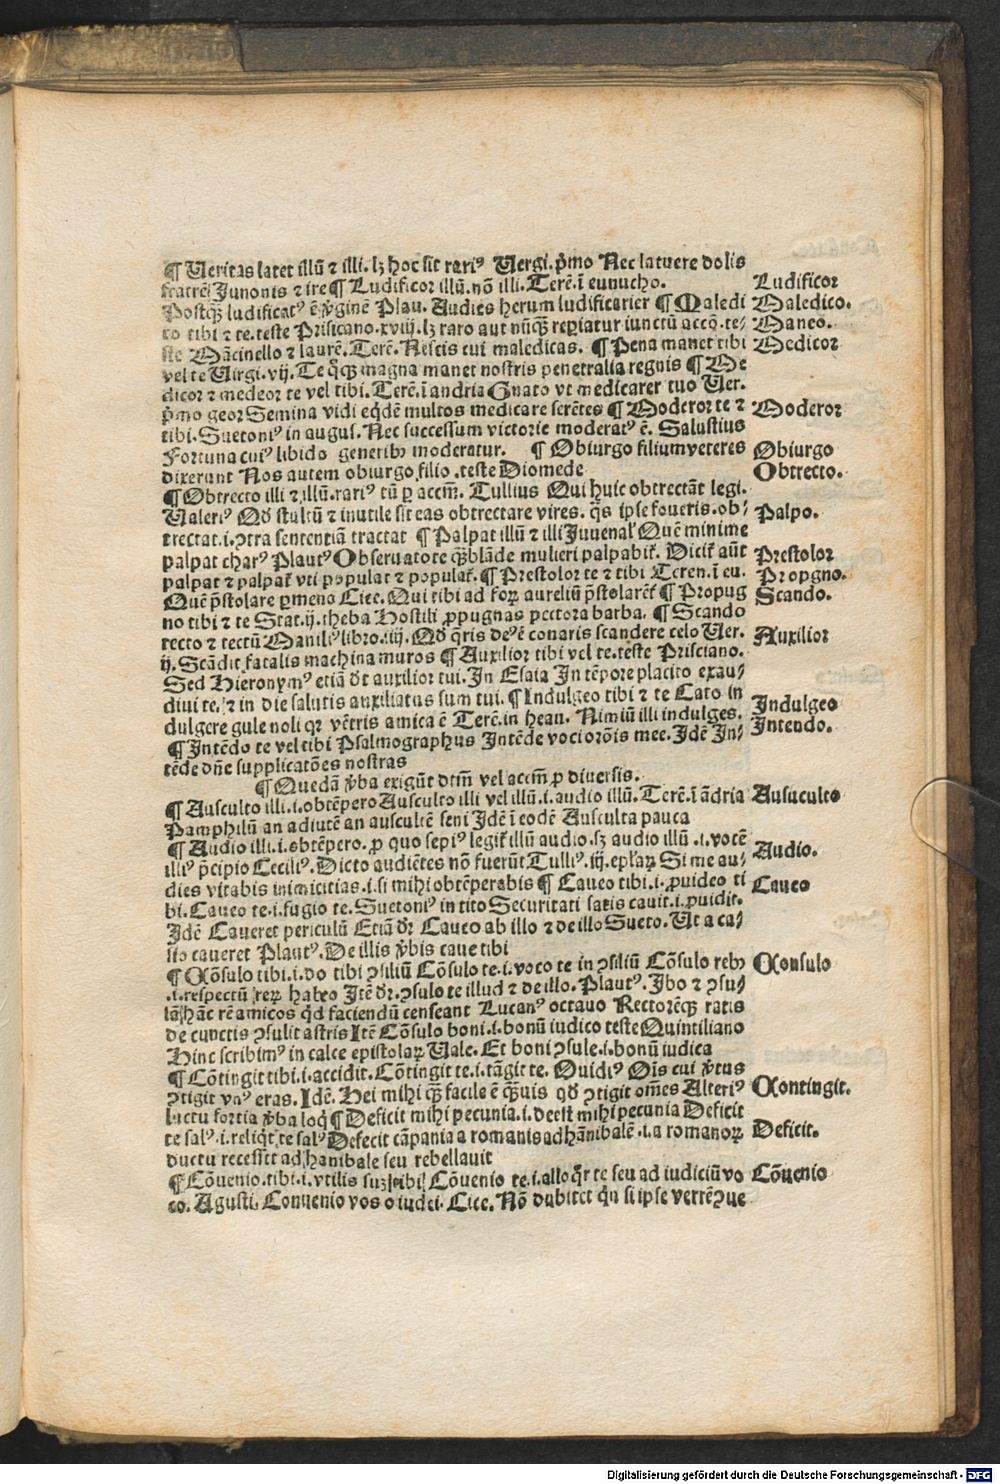 ¶ Ueritas latet illū ⁊ illi. lꝫ hoc sit rariꝰ Uergi. p̄mo Nec latuere dolis
fratrē Junonis ⁊ ire ¶ Ludificor illū. nō illi. Terē. ī eunucho.
Ludificor
Postqꝫ ludificatꝰ ē v̄ginē Plau. Audies herum ludificarier ¶ Maledi
Maledico.
co tibi ⁊ te. teste Prisciano. xviij. lꝫ raro aut nūqꝫ repiatur iunctū accō. te/
Maneo.
ste Mācinello ⁊ laurē. Terē. Nescis cui maledicas. ¶ Pena manet tibi
Medicor
vel te Uirgi. vij. Te qꝫ magna manet nostris penetralia regnis ¶ Me
dicor ⁊ medeor te vel tibi. Terē. ī andria Gnato vt medicarer tuo Uer.
p̄mo geor Semina vidi eqdē multos medicare serētes ¶ Moderor te ⁊
Moderor
tibi. Suetoniꝰ in augus. Nec successum victorie moderatꝰ ē. Salustius
Fortuna cuiꝰ libido gentibꝫ moderatur. ¶ Obiurgo filium veteres
Obiurgo
dixerunt Nos autem obiurgo filio. teste Diomede
Obtrecto.
¶ Obtrecto illi ⁊ illū. rariꝰ tn̄ ꝑ accm̄. Tullius Qui huic obtrectāt legi.
Ualeriꝰ Qđ stultū ⁊ inutile sit eas obtrectare vires. qs ipse foueris. ob/
Palpo.
trectat. i. ꝯtra sententiā tractat ¶ Palpat illū ⁊ illi Juuenalꝰ Quē minime
palpat charꝰ Plautꝰ Obseruatote qꝫ blāde mulieri palpabit̄. Dicit̄ aūt
Prestolor
palpat ⁊ palpat̄ vti populat ⁊ populat̄. ¶ Prestolor te ⁊ tibi Teren. ī eu.
Propgno.
Quē p̄stolare ꝑmeno Cice. Qui tibi ad forꝝ aureliū p̄stolarēt̄ ¶ Propug
Scando.
no tibi ⁊ te Stat. ij. theba Hostili ꝓpugnas pectora barba. ¶ Scando
tecto ⁊ tectū Maniliꝰ libro. iiij. Qđ qris deꝰ ē conaris scandere celo Uer.
Auxilior
ij. Scādit fatalis machina muros ¶ Auxilior tibi vel te. teste Prisciano.
Sed Hieronymꝰ etiā dr̄ auxilior tui. In Esaia In tēpore placito exau/
diui te. ⁊ in die salutis auxiliatus sum tui. ¶ Indulgeo tibi ⁊ te Cato in
Indulgeo
dulgere gule noli qꝛ vētris amica ē Terē. in heau. Nimiū illi indulges.
Intendo.
¶ Intēdo te vel tibi Psalmographus Intēde voci orōis mee. Idē In/
tēde dn̄e supplicatōes nostras
¶ Quedā v̄ba exigūt dtm̄ vel accm̄ ꝓ diuersis.
¶ Ausculto illi. i. obtēpero Ausculto illi vel illū. i. audio illū. Terē. ī ādria
Ausuculto
Pamphilūn an adiutē an auscultē seni Idē ī eodē Ausculta pauca
¶ Audio illi. i. obtēpero. ꝓ quo sepiꝰ legit̄ illū audio. sꝫ audio illū. i. vocē
Audio.
illiꝰ p̄cipio Ceciliꝰ. Dicto audiētes nō fuerūt Tulliꝰ. iij. epl̄aꝝ Si me au/
dies vitabis inimicitias. i. si mihi obtēperabis ¶ Caueo tibi. i. ꝓuideo ti
Caueo
bi. Caueo te. i. fugio te. Suetoniꝰ in tito Securitati satis cauit. i. ꝓuidit.
Idē Caueret periculū Etiā dr̄ Caueo ab illo ⁊ de illo Sueto. Ut a ca/
sio caueret Plautꝰ. De illis v̄bis caue tibi
¶ Cōsulo tibi. i. do tibi ꝯsiliū Cōsulo te. i. voco te in ꝯsiliū Cōsulo rebꝫ
Consulo
.i. respectū reꝝ habeo Itē dr̄. ꝯsulo te illud ⁊ de illo. Plautꝰ. Ibo ⁊ ꝯsu/
lā hāc rē amicos qd faciendū censeant Lucanꝰ octauo Rectorēqꝫ ratis
de cunctis ꝯsulit astris Itē Cōsulo boni. i. bonū iudico teste Quintiliano
Hinc scribimꝰ in calce epistolaꝝ Uale. Et boni ꝯsule. i. bonū iudica
¶ Cōtingit tibi. i. accidit. Cōtingit te. i. tāgit te. Ouidiꝰ Oīs cui v̄tus
ꝯtigit vnꝰ eras. Idē. Hei mihi qꝫ facile ē qꝫuis qđ ꝯtigit om̄es Alteriꝰ
Contingit.
luctu fortia v̄ba loqͥ ¶ Deficit mihi pecunia. i. deest mihi pecunia Deficit
te salꝰ. i. reliqͥt te salꝰ Defecit cāpania a romanis ad hānibalē. i. a romanoꝝ
Deficit.
ductu recessit ad hanibale seu rebellauit
¶ Cōuenio. tibi. i. vtilis suꝫ tibi Cōuenio te. i. alloqͦr te seu ad iudiciū vo
Cōuenio
co. Agusti. Conuenio vos o iudei. Cice. Nō dubitet qn̄ si ipse verrē ꝯue
Digitalisierung gefördert durch die Deutsche Forschungsgemeinschaft - DFG